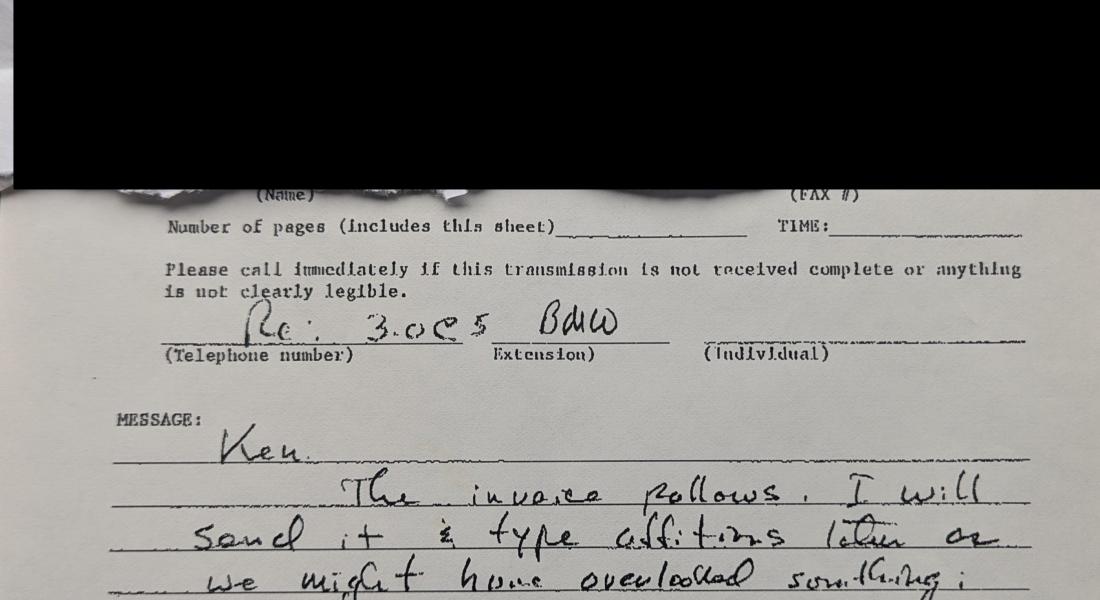 (Name) (FAX #)
Number of pages (includes this sheet) TIME:
Please call immediately if this transmission is not received complete or anything
is not clearly legible.
Re:
(Telephone number) Extension) (Individual)
MESSAGE:
Ken.
The invoice follows. I will
send it & type later as
we might have overlooked something;